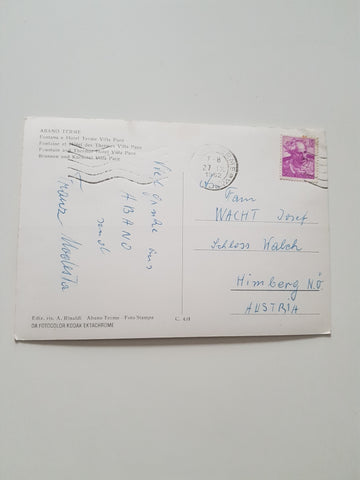 ABANO TERME
Fontana e Hotel Terme Villa Pace
Fontaine et Hôtel des Thermes Villa Pace
Fountain and Thermae Hotel Villa Pace
Brunnen und Kurhotel Villa Pace
Viel aus
ABANO
send
Franz Modesta
7-8
27
1962
Fam
WACHT Josef
Schloss Walch
Himberg N.Ö
AUSTRIA
Ediz. ris. A. Rinaldi Abano Terme - Foto Stampa
C. 4/8
DA FOTOCOLOR KODAK EKTACHROME